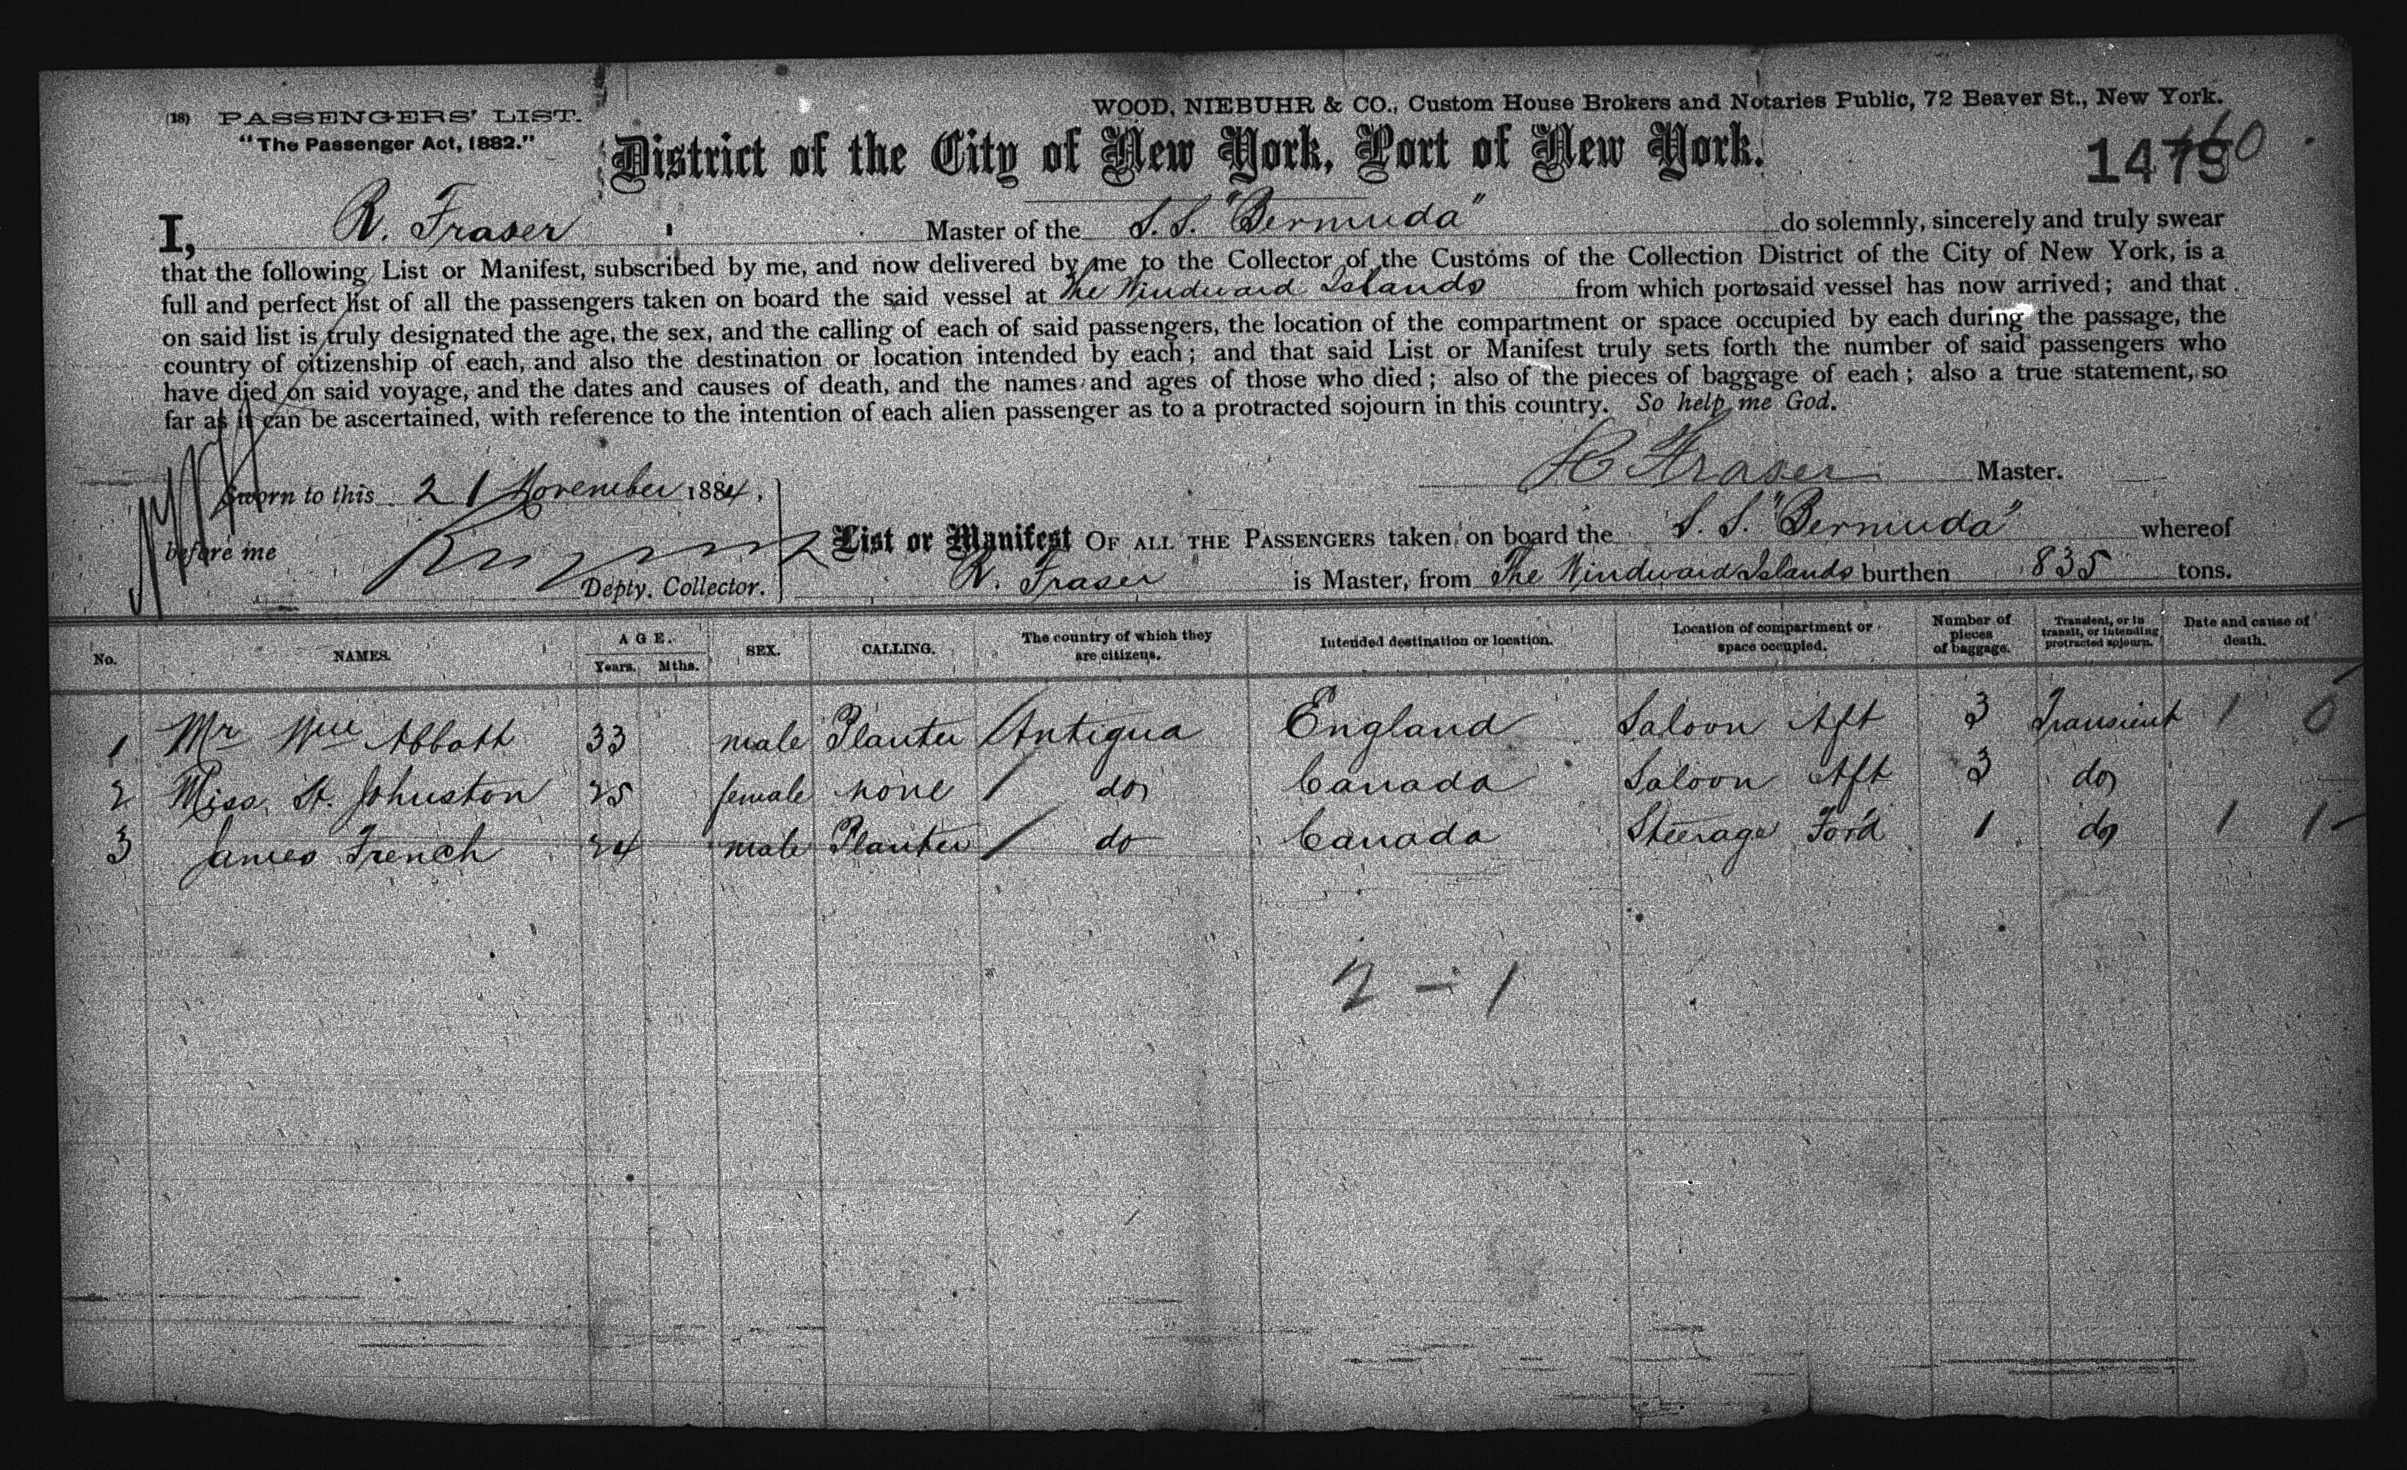 (18) PASSENGERS' LIST.
"The Passenger Act, 1882."
WOOD, NIEBUHR & CO., Custom House Brokers and Notaries Public, 72 Beaver St., New York.
District of the City of New York, Port of New York.
I, R. Fraser Master of the S.S. "Bermuda" do solemnly, sincerely and truly swear
that the following List or Manifest, subscribed by me, and now delivered by me to the Collector of the Customs of the Collection District of the City of New York, is a
full and perfect list of all the passengers taken on board the said vessel at The Windward Islands from which port said vessel has now arrived; and that
on said list is truly designated the age, the sex, and the calling of each of said passengers, the location of the compartment or space occupied by each during the passage, the
country of citizenship of each, and also the destination or location intended by each; and that said List or Manifest truly sets forth the number of said passengers who
have died on said voyage, and the dates and causes of death, and the names and ages of those who died; also of the pieces of baggage of each; also a true statement, so
far as it can be ascertained, with reference to the intention of each alien passenger as to a protracted sojourn in this country. So help me God.
Fraser Master.
Sworn to this 21 November 1884,
before me
Depty. Collector.
List or Manifest OF ALL THE PASSENGERS taken on board the S. S. "Bermuda" whereof
R. Fraser is Master, from The Windward Islands burthen 835 tons.
No. NAMES. AGE. Years. Mths. SEX. CALLING. The country of which they are citizens. Intended destination or location. Location of compartment or space occupied. Number of pieces of baggage. Transient, or in transit, or intending protracted sojourn. Date and cause of death.
1 Mr Wm Abbott 33 male Planter Antigua England Saloon Aft 3 Transient 1 0
2 Miss St. Johnston 25 female none do Canada Saloon Aft 3 do
3 James French 24 male Planter do Canada Steerage For'd 1 do 1 1
2 - 1